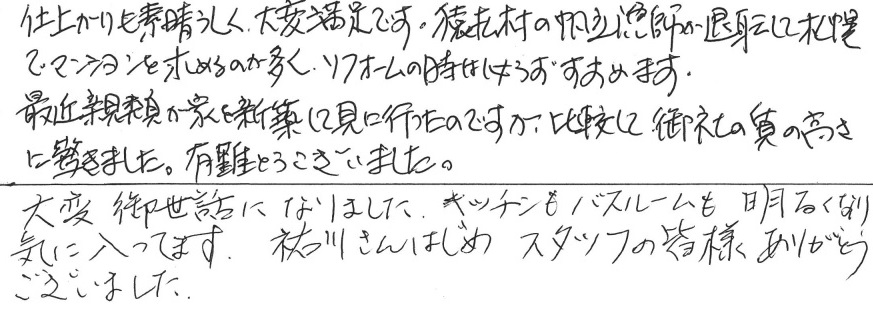 仕上がりも素晴らしく、大変満足です。猿払村の帆立漁師が退職して札幌
でマンションを求めるのが多く、リフォームの時は必らずすすめます。
最近親類が家を新築して見に行ったのですが、比較して御社の質の高さ
に驚きました。有難とうございました。
大変御世話になりました。キッチンもバスルームも明るくなり
気に入ってます。祐川さんはじめスタッフの皆様ありがとう
ございました。